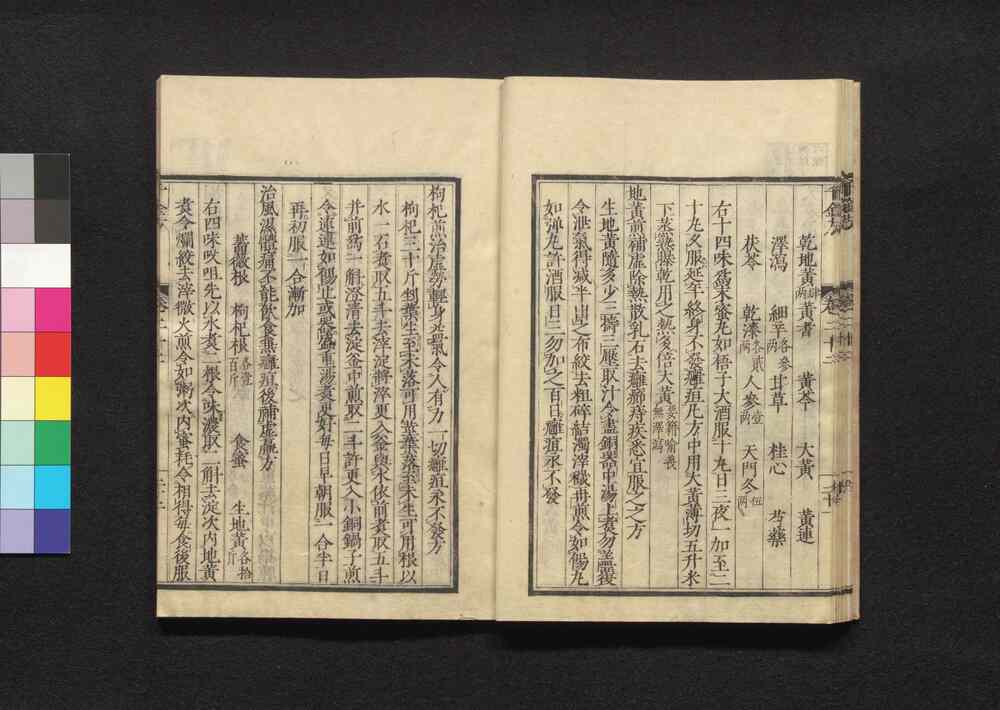 乾地黃四兩 黃耆 黃芩 大黃 黃連
澤瀉 細辛各參兩 甘草 桂心 芍藥
茯苓 乾漆各貳兩 人參壹兩 天門冬伍兩
右十四味為末蜜丸如梧子大酒服十丸日三夜一加至二
十丸久服延年終身不發癰疽凡方中用大黃薄切五升米
下蒸熟曝乾用之熱多倍大黃要籍喻義無澤瀉
地黃煎補虛除熱散乳石去癰癤痔疾悉宜服之之方
生地黃隨多少三擣三壓取汁令盡銅器中湯上煮勿蓋復
令泄氣得減半出之布絞去粗碎結濁滓穢再煎令如餳丸
如彈丸許酒服日二勿加之百日癰疽永不發
枸杞煎治虛勞輕身益氣令人有力一切癰疽永不發方
枸杞三十斤剉葉生至未落可用莖葉落至未生可用根以
水一石煮取五斗去滓淀將滓更入釜與水依前煮取五斗
并前為一斛澄清去淀釜中煎取二斗許更入小銅鍋子煎
令連連如餳止或器盛重湯煮更好每日早朝服一合半日
再初服一合漸加
治風濕體痛不能飲食兼癰疽後補虛羸方
薔薇根 枸杞根各壹百斤 食蜜 生地黃各拾斤
右四味㕮咀先以水煮二根令味濃取二斛去淀次內地黃
煮令爛絞去滓微火煎令如粥次內蜜耗令相得每食後服